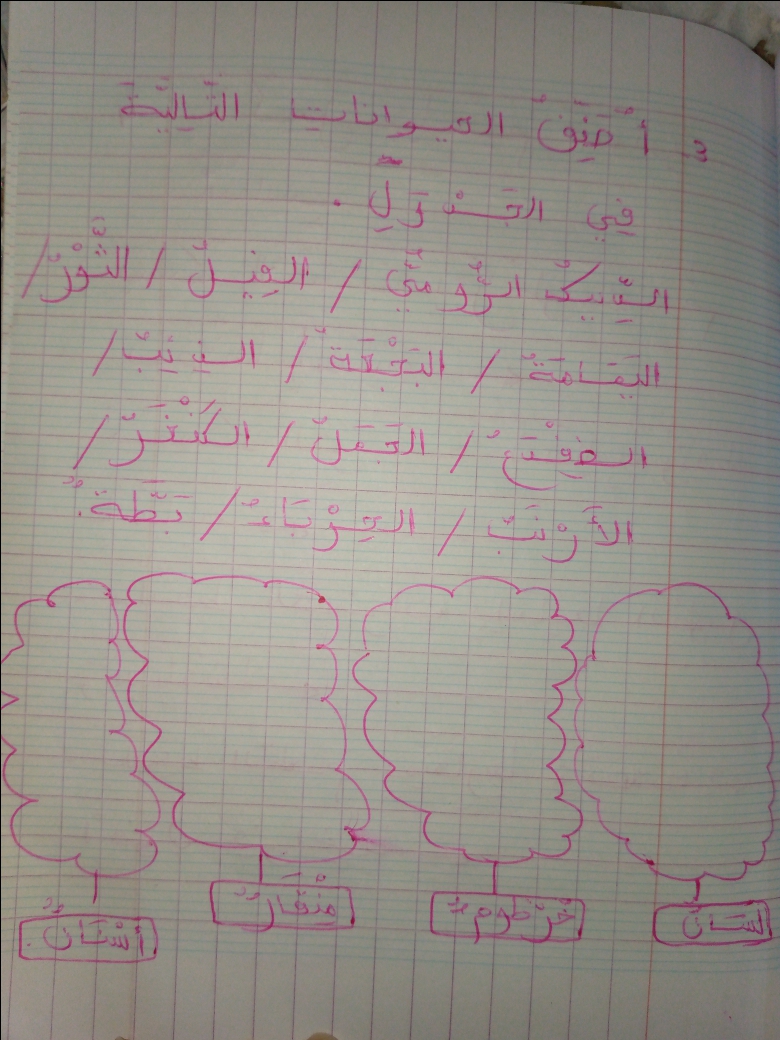 3. أُصَنِّفُ الحيواناتِ التَّالِيَةَ
فِي الجَدْوَلِ .
الدِّيكُ الرُّومِيُّ / الفِيلُ / الثَّوْرُ /
اليَمَامَةُ / البَجْعَةُ / الذِئِبُ /
الضِفْدَعُ / الجَمَلُ / الكَنْغَرُ /
الأَرْنَبُ / الحِرْبَاءُ / بَطَّةٌ.
لسَانٌ
خُرْطُومٌ
مِنْقَارٌ
أسْنَانٌ.